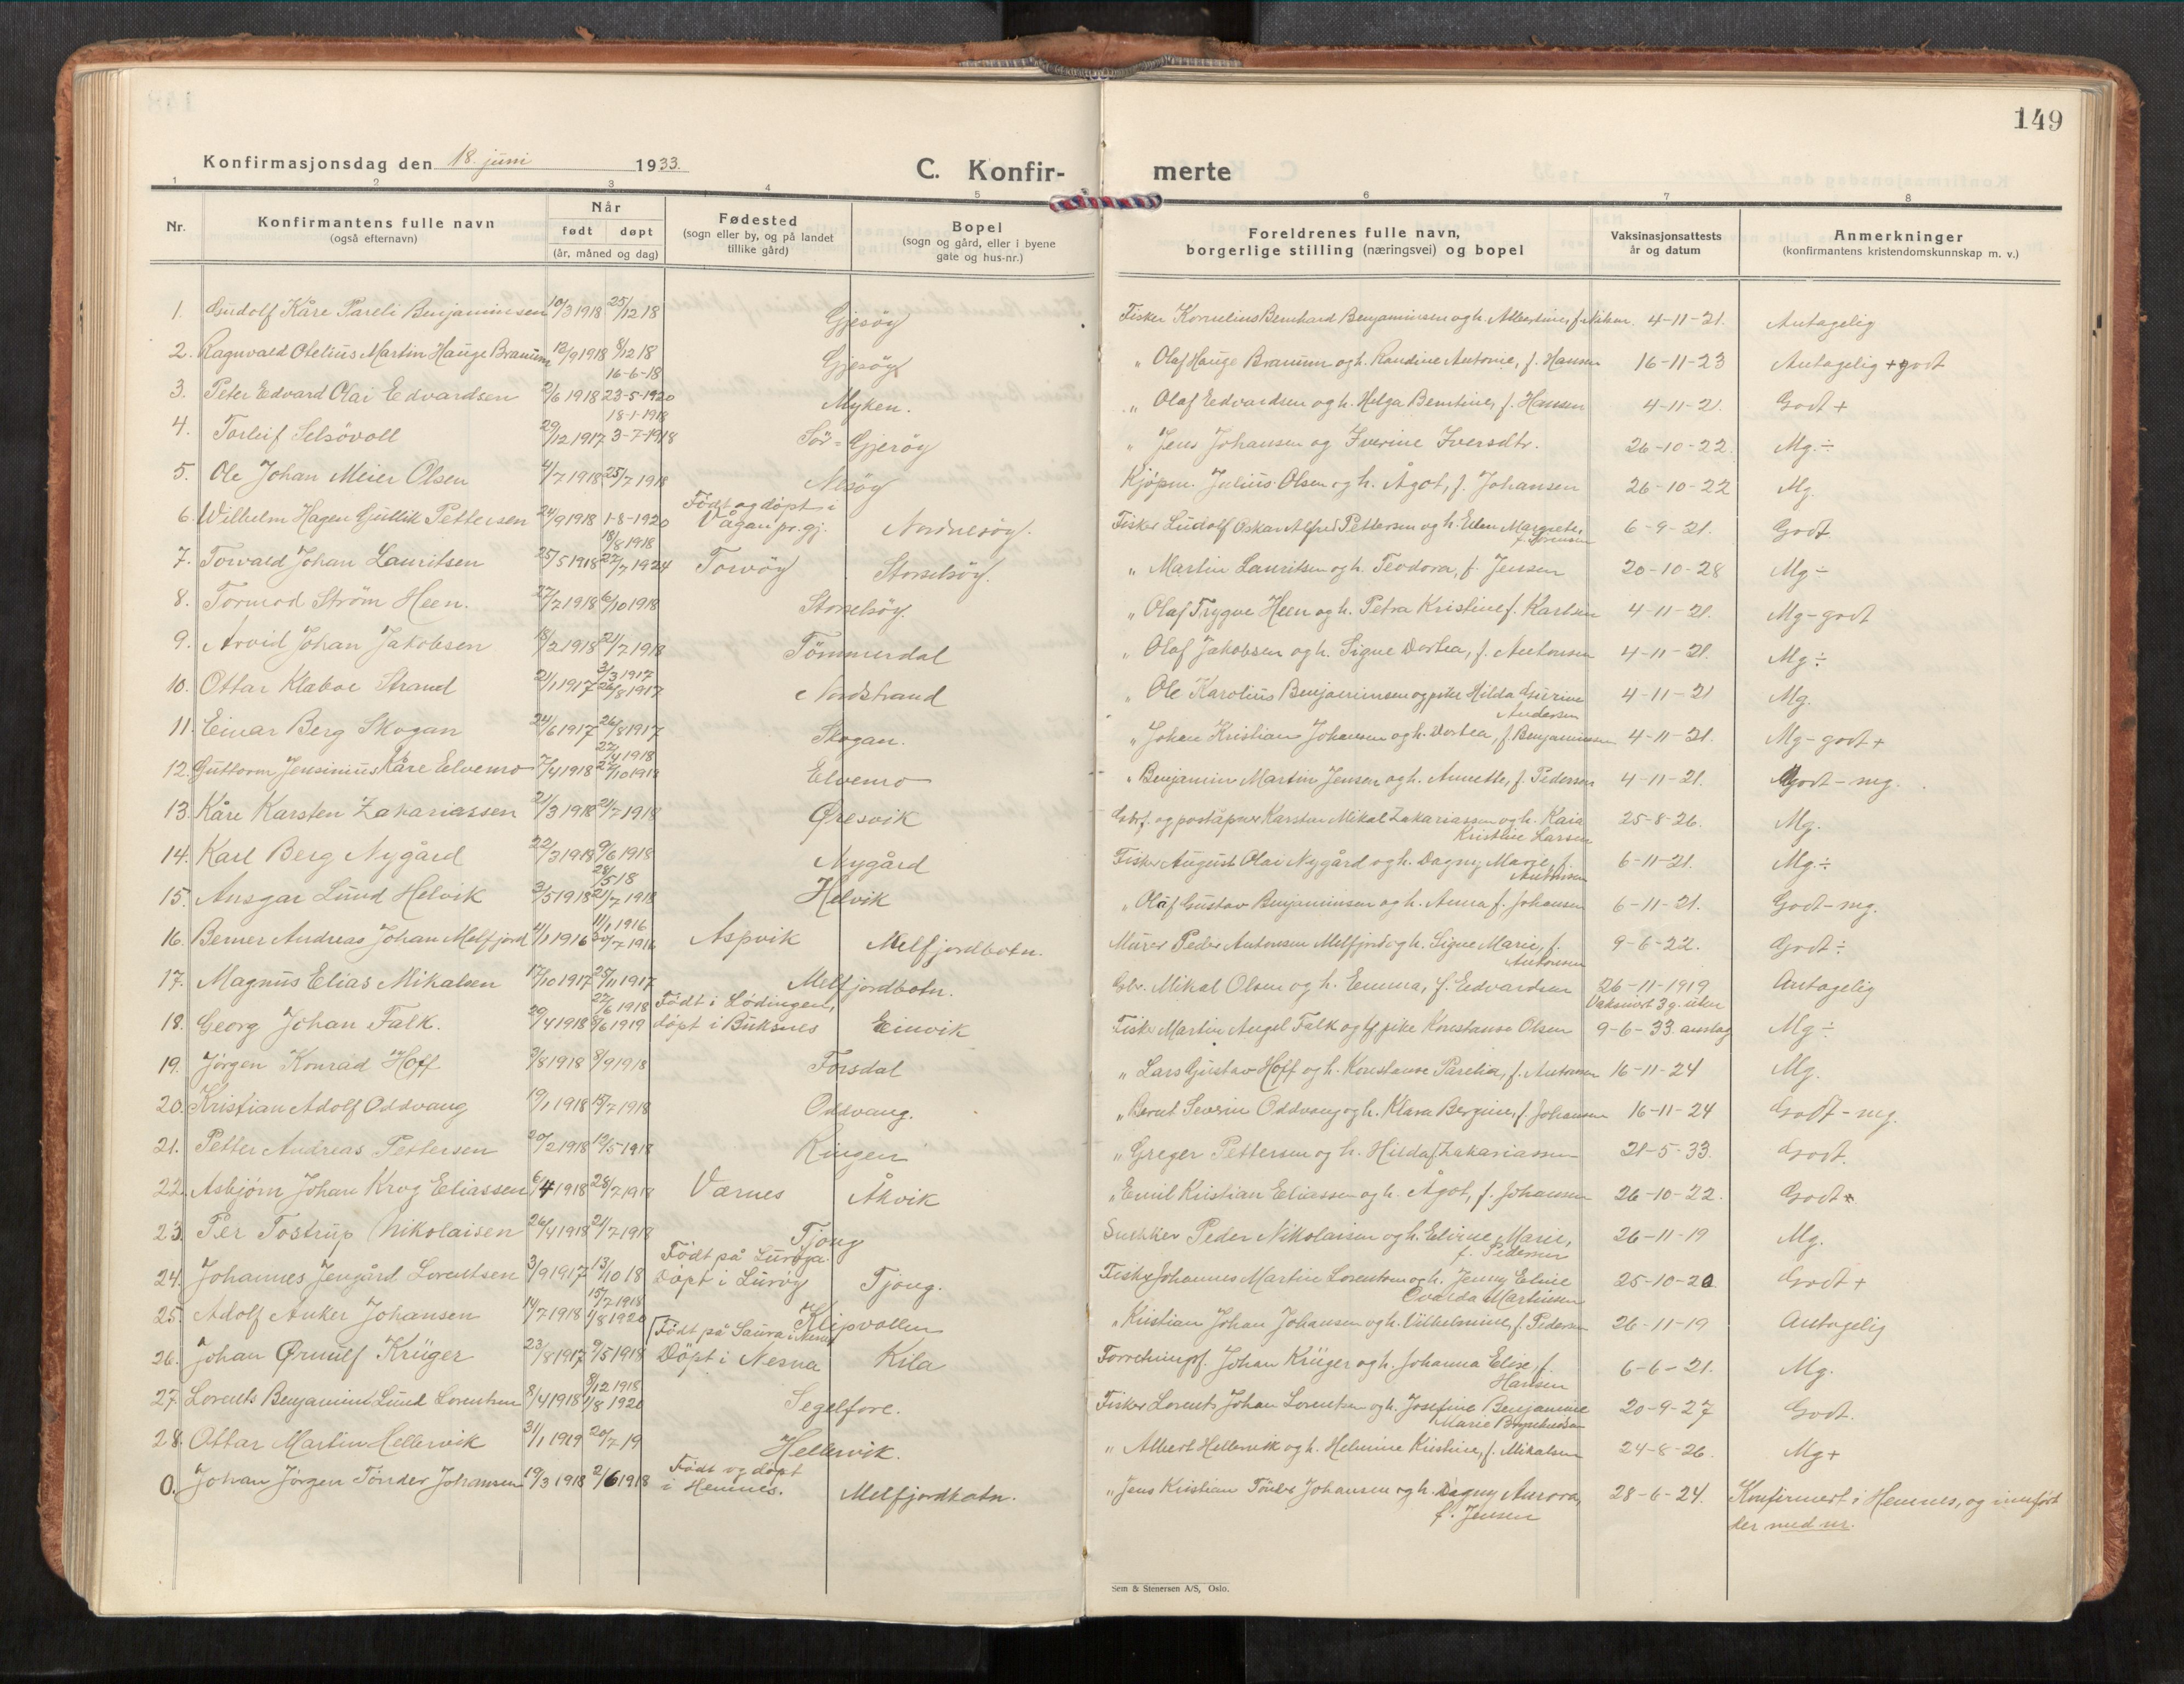 149
Konfirmasjonsdag den 18. juni 1933.
C. Konfir- merte
1 2 3 4 5 6 7 8
Nr.
Konfirmantens fulle navn
(også efternavn)
Når
født døpt
(år, måned og dag)
Fødested
(sogn eller by, og på landet
tillike gård)
Bopel
(sogn og gård, eller i byene
gate og hus-nr.)
Foreldrenes fulle navn,
borgerlige stilling (næringsvei) og bopel
Vaksinasjonsattests
år og datum
Anmerkninger
(konfirmantens kristendomskunnskap m. v.)
1. Gudolf Kåre Pareli Benjaminsen 10/3 1918 25/12 18 Gjesöy Fisker Kornelius Bernhard Benjaminsen og h. Albertine, f. 4-11-21. Antagelig
2. Ragnvald Otelius Martin Hauge Braseth 12/9 1918 8/12 18 Gjesöy " Olaf Hauge og h. Randine Antonie, f. Hansen 16-11-23 Antagelig + godt
16-6-18
3. Peter Edvard Olai Edvardsen 2/6 1918 23-5-1920 Myken. " Olaf Edvardsen og h. Helga Berntine, f. Hansen 4-11-21. Godt +
18-1-1918
4. Torleif Selsövoll 29/12 1917 3-7-1918 Sör-Gjeröy " Jens Johansen og Iverine Iversdtr. 26-10-22 Mg. ÷
5. Ole Johan Meier Olsen 4/7 1918 25/7 1918 Nesöy Kjøpm. Julius Olsen og h. Ågot, f. Johansen 26-10-22 Mg.
Födt og döpt i
6. Wilhelm Hagen Gjullik Pettersen 24/9 1918 1-8-1920 Vågan pr.gj. Nordnesöy. Fisker Ludolf Oskar Alfred Pettersen og h. Ellen Margrete, 6-9-21. Godt
18/8 1918
7. Torvald Johan Lauritsen 25/5 1918 27/7 1924 Torvöy Storselsöy. " Martin Lauritsen og h. Teodora, f. Jensen 20-10-28 Mg ÷
8. Tormod Ström Heen. 27/7 1918 6/10 1918 Storselsöy. " Olaf Trygve Heen og h. Petra Kristine f. Karlsen 4-11-21. Mg - godt
9. Arvid Johan Jakobsen 18/2 1918 21/7 1918 Tömmerdal " Olaf Jakobsen og h. Signe Dortea, f. Antonsen 4-11-21. Mg ÷
3/3 1917
10. Ottar Klæboe Strand 21/1 1917 26/8 1917 Nordstrand " Ole Karolius Benjaminsen og pike Hilda Guvine 4-11-21 Mg.
Andersen
11. Einar Berg Skogan 24/6 1917 26/8 1917 Skogan. " Johan Kristian Johansen og h. Dortea, f. Benjaminsen 4-11-21. Mg - godt +
27/4 1918
12. Guttorm Jensinius Kåre Elvemo 7/4 1918 27/10 1918 Elvemo " Benjamin Martin Jensen og h. Annette, f. Pedersen 4-11-21. Godt - mg.
13. Kåre Karsten Zakariassen 21/3 1918 21/7 1918 Øresvik Gbr. og poståpner Karsten Mikal Zakariassen og h. Kaia 25-8-26. Mg.
Kristine Larsen
14. Karl Berg Nygård 22/3 1918 9/6 1918 Nygård Fisker August Olai Nygård og h. Dagny Marie, f. 6-11-21. Mg. ÷
Antonsen
28/5 18
15. Ansgar Lund Helvik 3/5 1918 21/7 1918 Helvik " Olaf Gustav Benjaminsen og h. Anna f. Johansen 6-11-21. Godt - mg.
11/1 1916
16. Berner Andreas Johan Melfjord 4/1 1916 30/7 1916 Aspvik Melfjordbotn. Murer Peder Antonsen Melfjord og h. Signe Marie, f. 9-6-22. Godt ÷
Antonsen
17. Magnus Elias Mikalsen 17/10 1917 25/11 1917 Melfjordbotn. Gbr. Mikal Olsen og h. Emma, f. Edvardsen 26-11-1919 Antagelig
22/6 1918 Födt i Lödingen, Vaksinert 3 g. uten
18. Georg Johan Falk. 29/4 1918 8/6 1919 döpt i Buksnes Einvik Fisker Martin Angel Falk og pike Konstanse Olsen 9-6-33. anslag Mg ÷
19. Jörgen Konrad Hoff 3/8 1918 8/9 1918 Forsdal " Lars Gustav Hoff og h. Konstanse Parelia, f. Antonsen 16-11-24 Mg.
20. Kristian Adolf Oddvang 19/1 1918 15/7 1918 Oddvang. " Bernt Severin Oddvang og h. Klara Bergine, f. Johansen 16-11-24 Godt - mg.
21. Petter Andreas Pettersen 20/2 1918 12/5 1918 Ringen " Greger Pettersen og h. Hilda f. Zakariassen 21-5-33. Godt.
22. Asbjörn Johan Krog Eliassen 6/4 1918 28/7 1918 Værnes Åkvik " Emil Kristian Eliassen og h. Ågot, f. Johansen 26-10-22. Godt
23. Per Tostrup Nikolaisen 26/4 1918 21/7 1918 Tjong Snekker Peder Nikolaisen og h. Elvine Marie, 26-11-19 Mg.
f. Pedersen
Födt på Luröya.
24. Johannes Jengård Lorentsen 3/9 1917 13/10 18 Döpt i Luröy Tjong. Fisker Johannes Martin Lorentsen og h. Jenny Eline 25-10-20 Godt +
Ovarda Martinsen
15/7 1918
25. Adolf Anker Johansen 14/7 1918 1/8 1920 Klipvollen " Kristian Johan Johansen og h. Vilhelmine, f. Pedersen 26-11-19 Antagelig
Födt på Saura i Nesna
26. Johan Ørnulf Krüger 23/8 1917 9/5 1918 Döpt i Nesna Kila Johan Krüger og h. Johanna Elise, f. 6-6-21. Mg.
Hansen
8/12 1918
27. Lorents Benjamin Lund Lorentsen 8/4 1918 1/8 1920 Segelfore. Fisker Lorents Johan Lorentsen og h. Josefine Benjamine 20-9-27 Godt.
28. Ottar Martin Hellervik 31/1 1919 20/7 19 Hellervik. " Albert Hellervik og h. Helmine Kristine, f. Mikalsen 24-8-26. Mg +
Födt og döpt
0. Johan Jörgen Tönder Johansen 19/3 1918 2/6 1918 i Hemnes. Melfjordbotn. " Jens Kristian Tönder Johansen og h. Dagny Aurora, 28-6-24. Konfirmert i Hemnes, og innført
f. Jensen der med nr.
Sem & Stenersen A/S, Oslo.